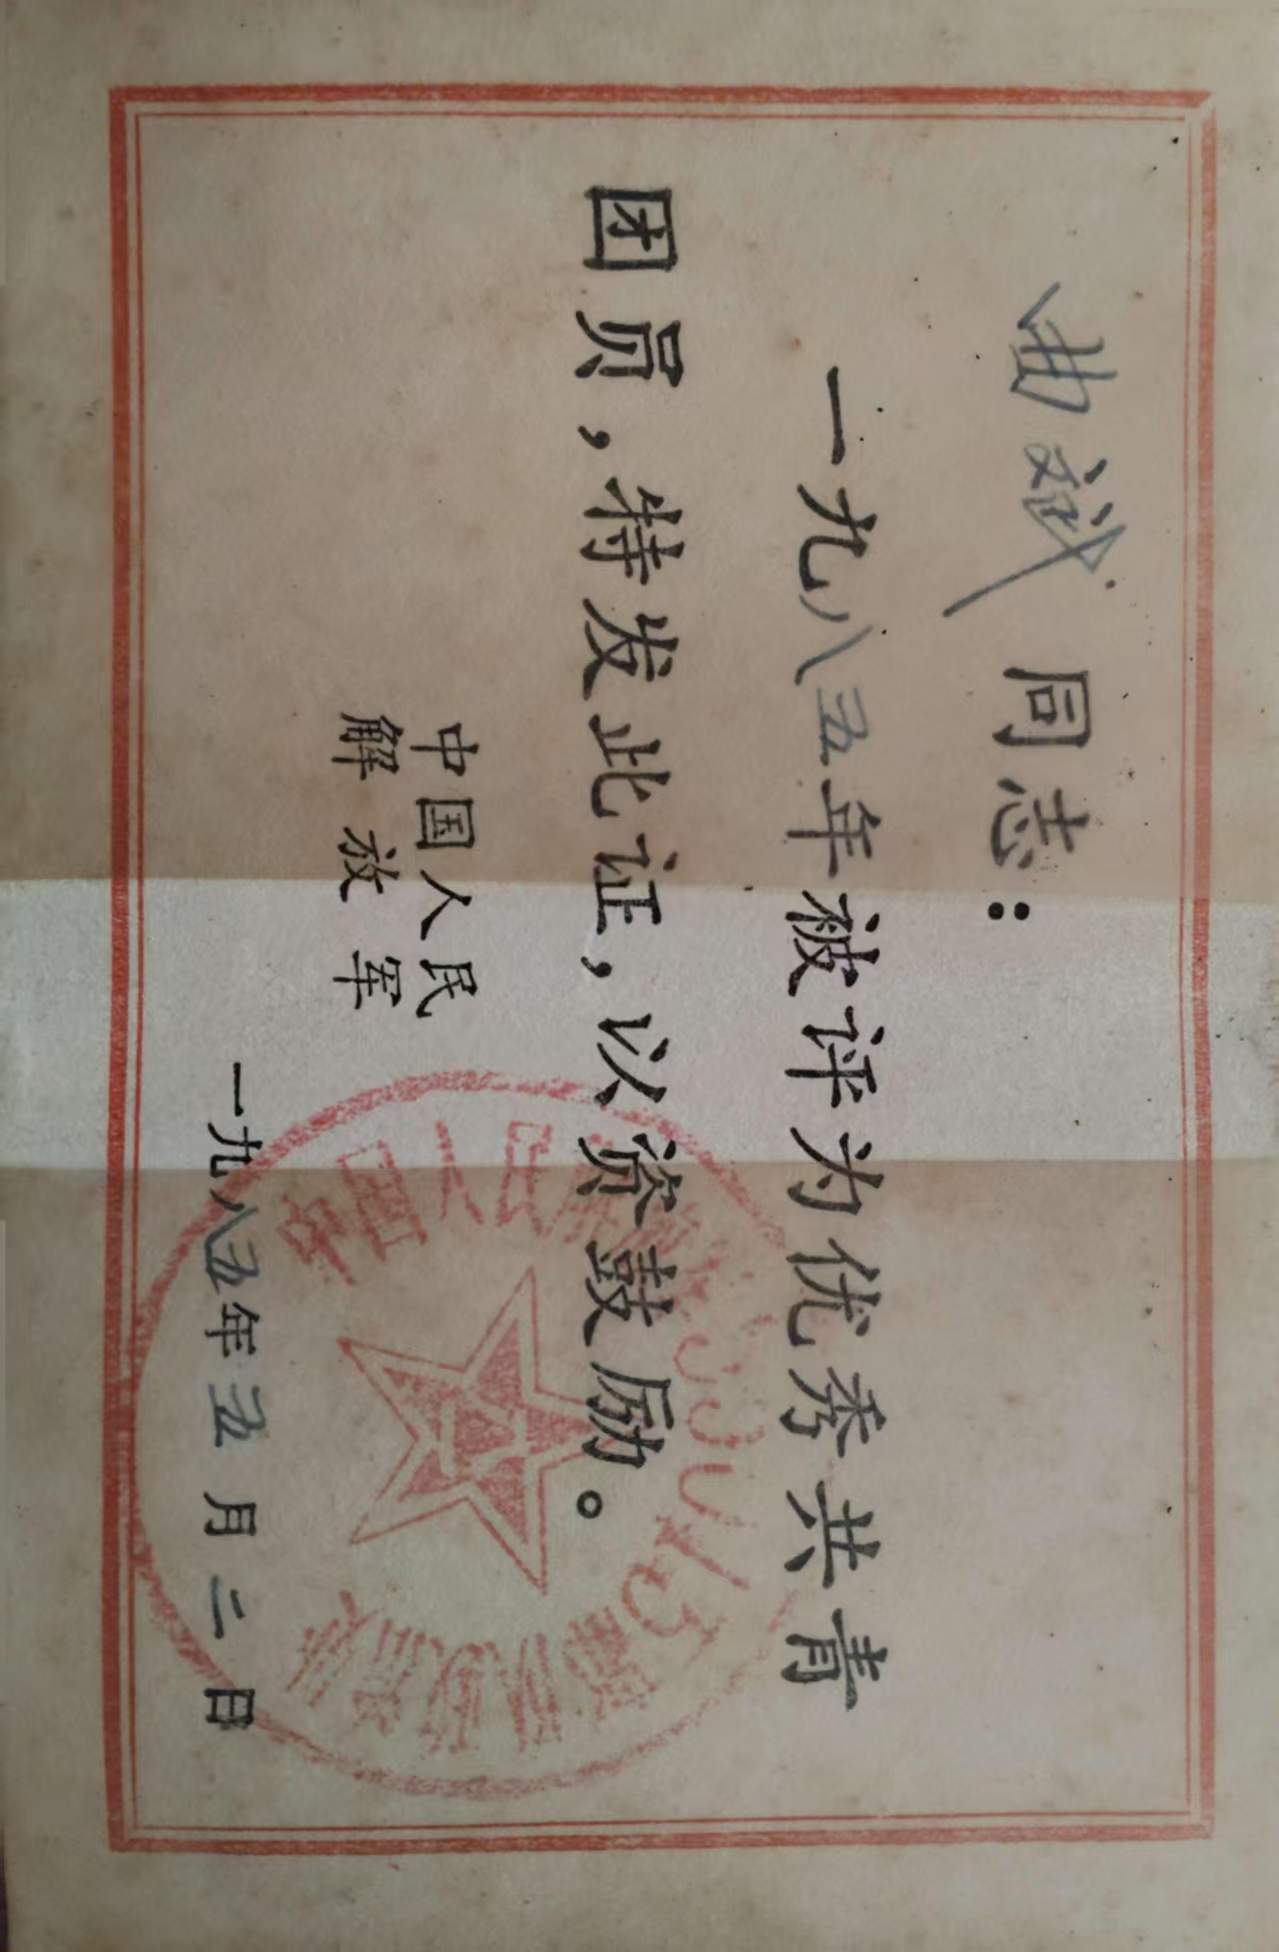 曲斌同志：
一九八五年被评为优秀共青
团员，特发此证，以资鼓励。
中国人民
解放军
一九八五年五月二日
中国人民解放军
部队